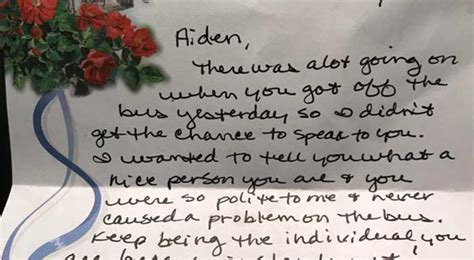 Aiden,
There was alot going on
when you got off the
bus yesterday so I didn't
get the chance to speak to you.
I wanted to tell you what a
nice person you are & you
were so polite to me & never
caused a problem on the bus.
Keep being the individual you
are